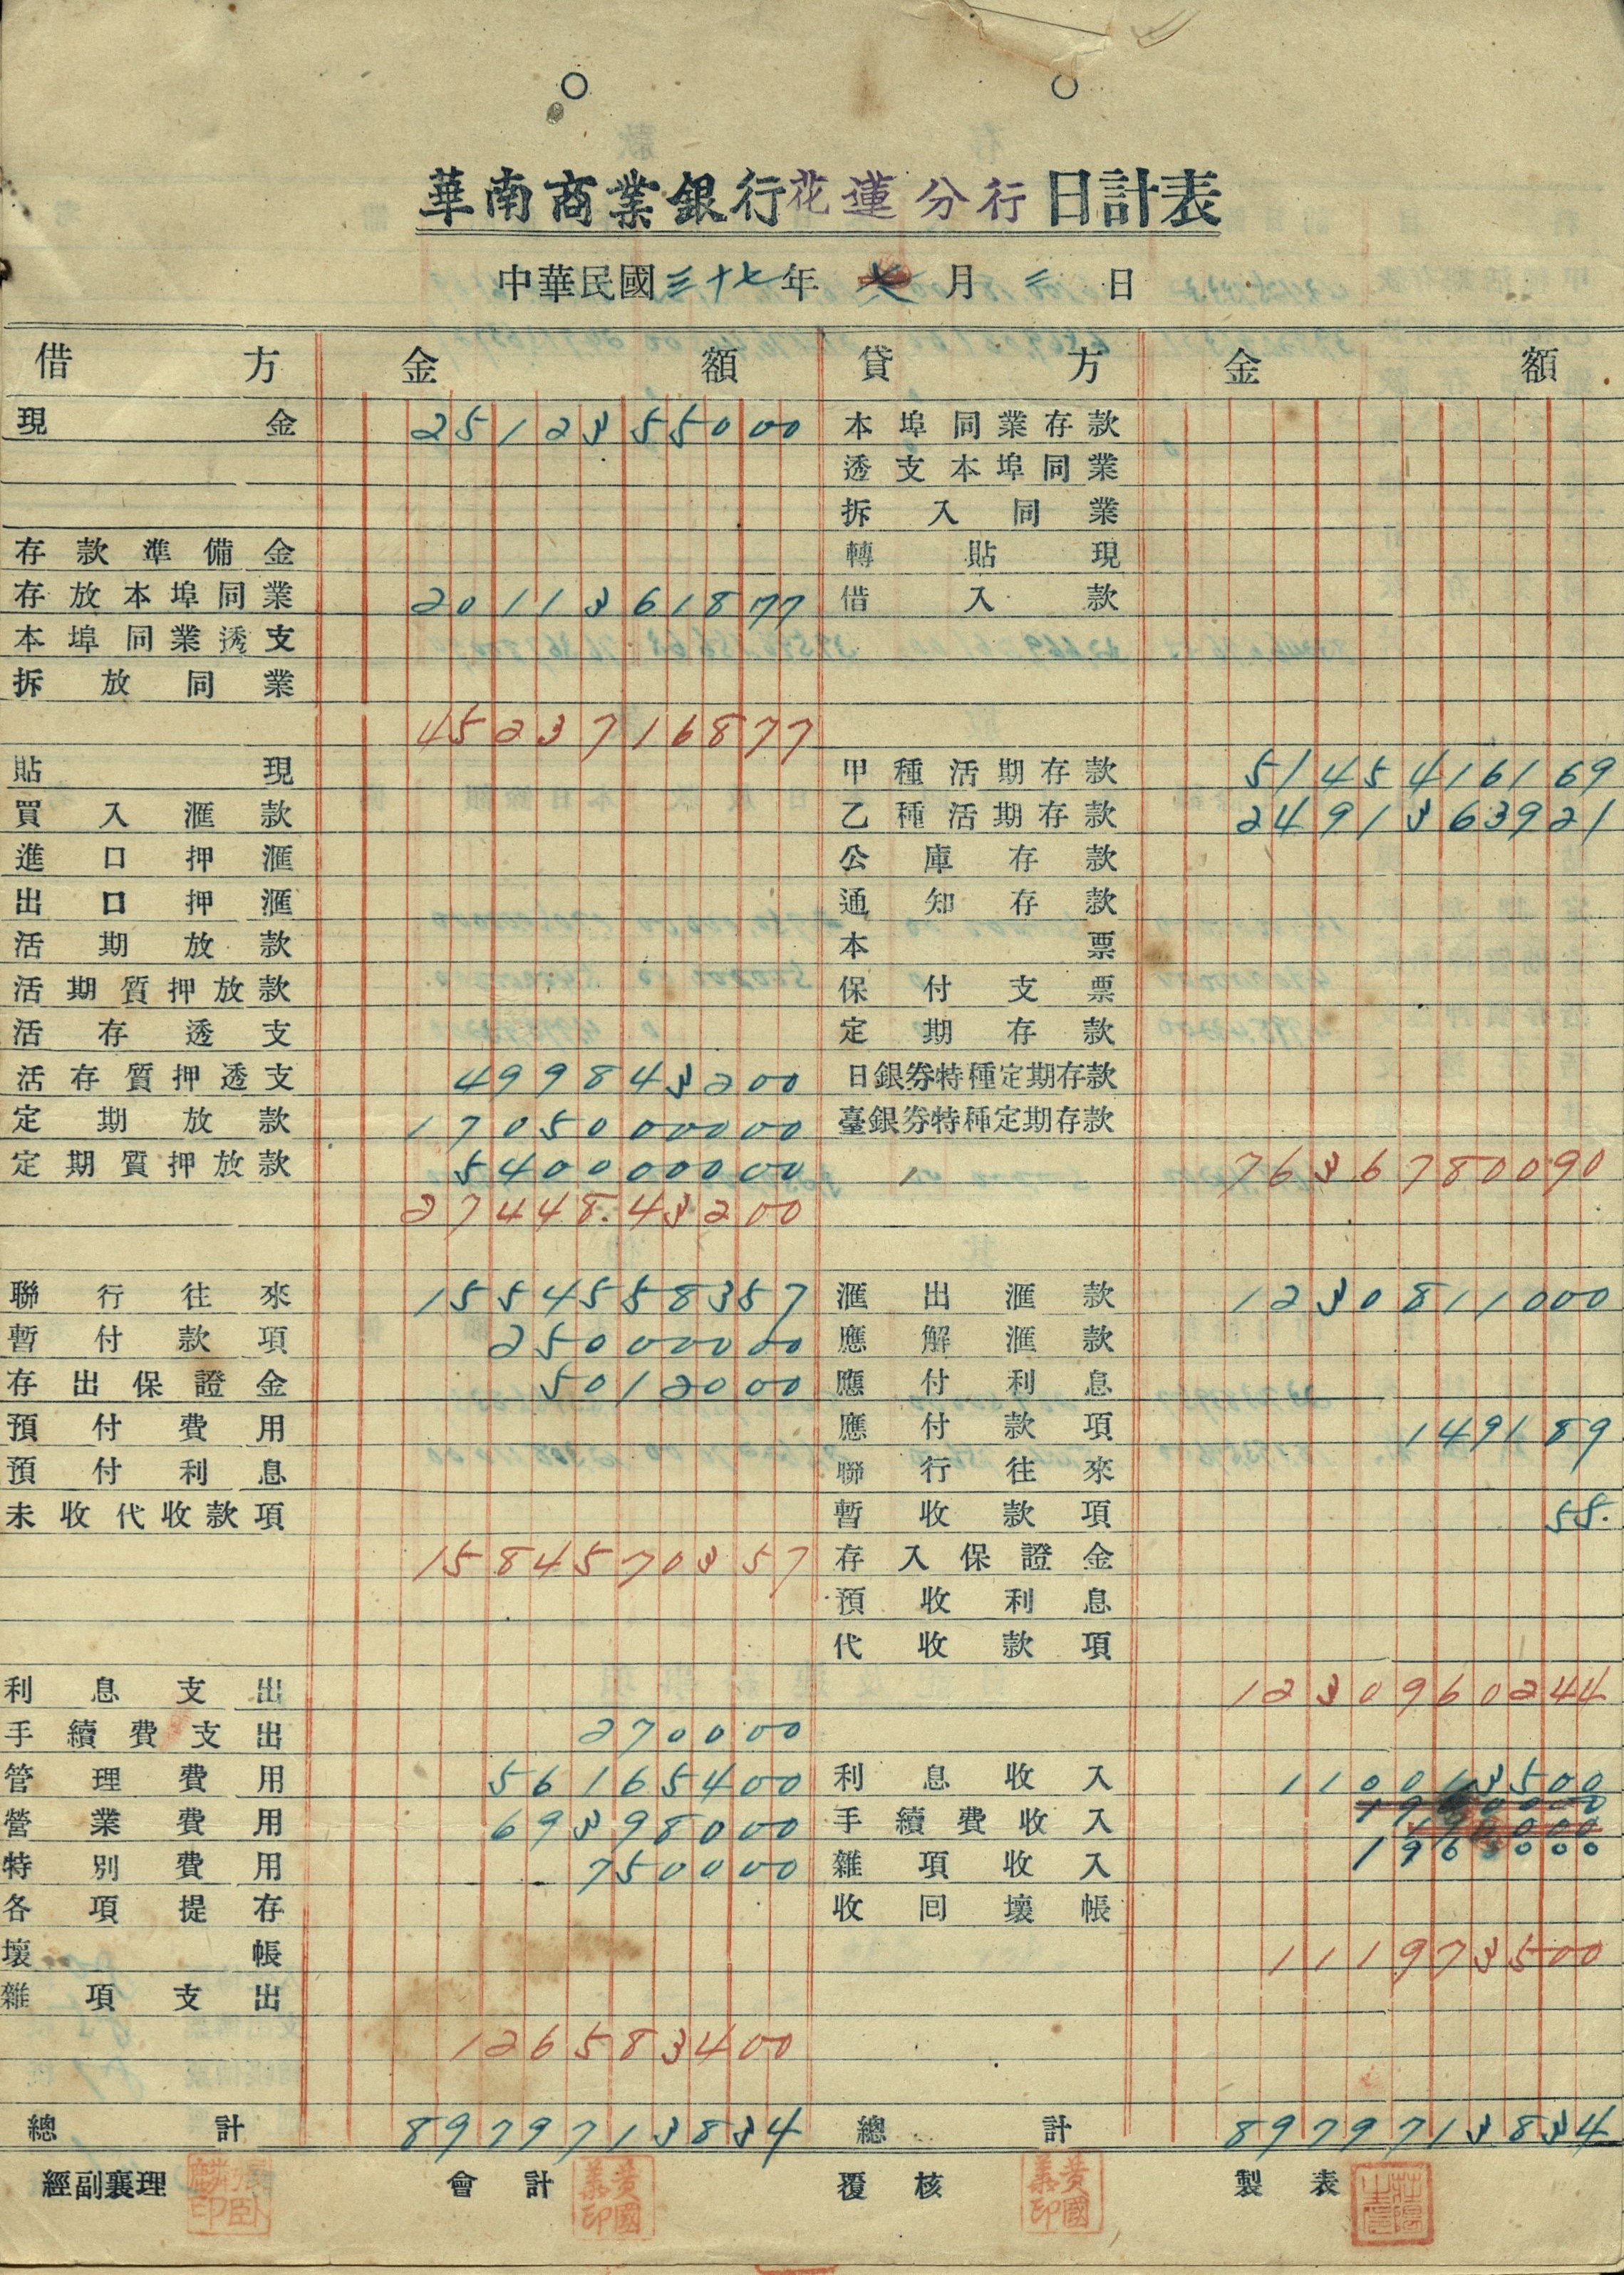 華南商業銀行花蓮分行日計表
中華民國三十七年 七月 三日
借方 金額 貸方 金額
現金 2512355000 本埠同業存款
透支本埠同業
拆入同業
存款準備金 轉貼現
存放本埠同業 2011361877 借入款
本埠同業透支
拆放同業
4523716877
貼現 甲種活期存款 5145416169
買入滙款 乙種活期存款 2491363921
進口押滙 公庫存款
出口押滙 通知存款
活期放款 本票
活期質押放款 保付支票
活存透支 定期存款
活存質押透支 499843200 日銀券特種定期存款
定期放款 1705000000 臺銀券特種定期存款
定期質押放款 540000000 7636780090
2744843200
聯行往來 1554558357 滙出滙款 1230811000
暫付款項 25000000 應解滙款
存出保證金 5012000 應付利息
預付費用 應付款項 149189
預付利息 聯行往來
未收代收款項 暫收款項 55.
1584570357 存入保證金
預收利息
代收款項
利息支出 1230960244
手續費支出 270000
管理費用 56165400 利息收入 110013500
營業費用 69398000 手續費收入
特別費用 750000 雜項收入 1960000
各項提存 收回壞帳
壞帳 111973500
雜項支出
126583400
總計 8979713834 總計 8979713834
經副襄理 會計 黃國義印 覆核 黃國義印 製表